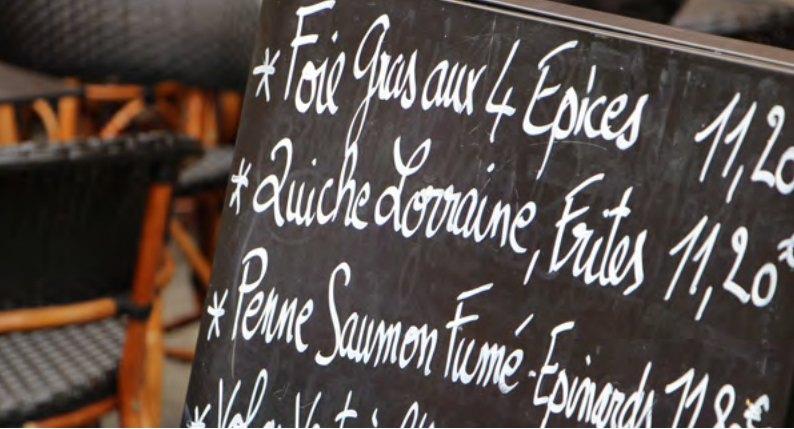 * Foie Gras aux 4 Epices 11,20
* Quiche Lorraine, Frites 11,20€
* Penne Saumon Fumé-Epinards 11,8 €
* Vol au Vent